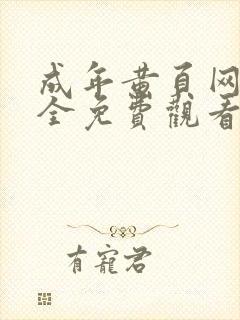 成年黄頁网
全免費觀看
有寵君